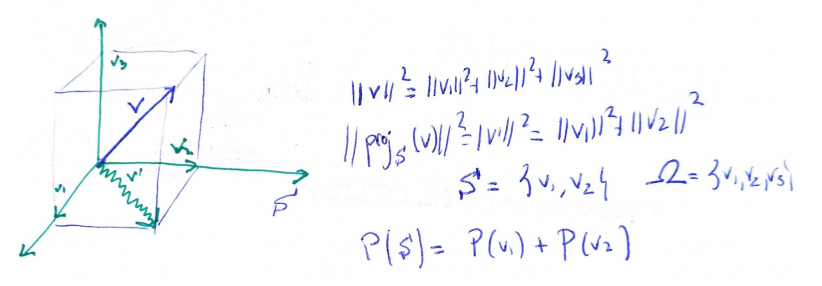 v₃
V
v₂
v₁
v'
S
||v||² = ||v₁||² + ||v₂||² + ||v₃||²
||proj_S(v)||² = |v'||² = ||v₁||² + ||v₂||²
S = {v₁, v₂} Ω = {v₁, v₂, v₃}
P(S) = P(v₁) + P(v₂)